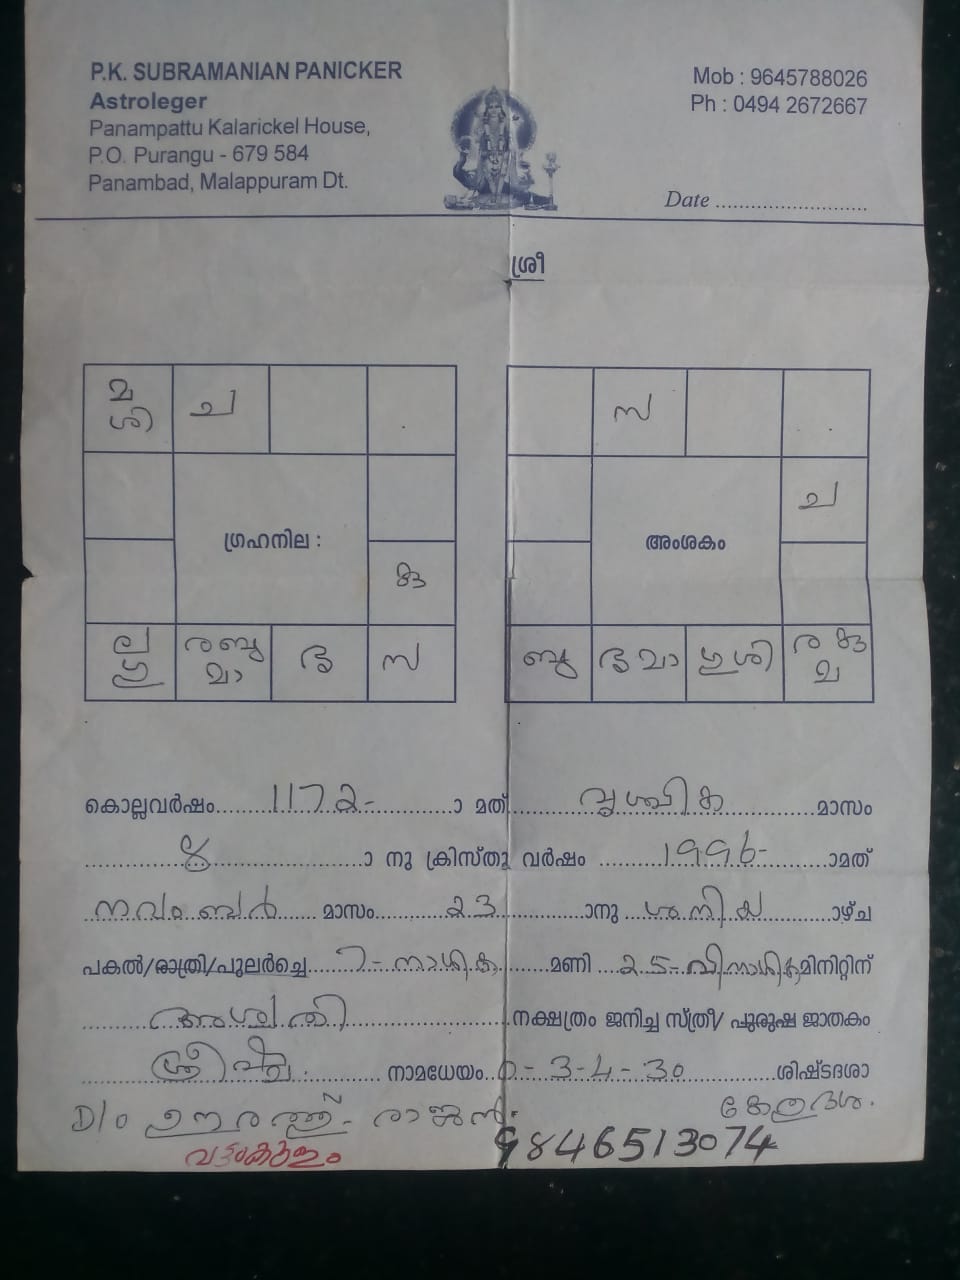 P.K. SUBRAMANIAN PANICKER
Astroleger
Panampattu Kalarickel House,
P.O. Purangu - 679 584
Panambad, Malappuram Dt.
Mob : 9645788026
Ph : 0494 2672667
Date ..........................
ശ്രീ
മ ച
ശി
ഗ്രഹനില :
കു
ല രബു ശു സ
ഗു മാ
സ
ച
അംശകം
ബു ശുമാ ഗുശി ര കു
മ
കൊല്ലവർഷം......1172-.........ാ മത്.......വൃശ്ചിക.........മാസം
..........8...............ാ നു ക്രിസ്തു വർഷം .......1996-.......ാമത്
നവംബർ...... മാസം.......23.........ാനു ..ശനിയ......ാഴ്ച
പകൽ/രാത്രി/പുലർച്ചെ...7-നാഴിക......മണി ...25-വിനാഴിക മിനിറ്റിന്
.......അശ്വതി.................നക്ഷത്രം ജനിച്ച സ്ത്രീ/ പുരുഷ ജാതകം
........ നാമധേയം..0-3-4-30.........ശിഷ്ടദശാ
D/o രാജൻ. കേതുദശ.
വട്ടംകുളം 9846513074